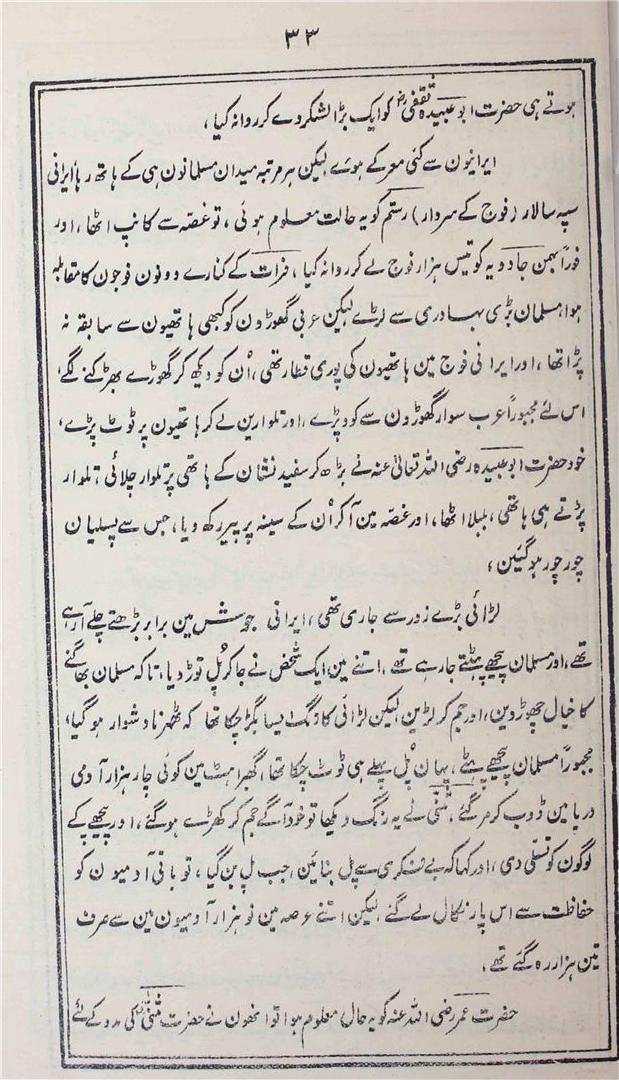 ۳۳
ہوتے ہی حضرت ابو عبیدہ ثقفیؓ کو ایک بڑا لشکر دے کر روانہ کیا،
ایرانیون سے کئی معرکے ہوے لیکن ہر مرتبہ میدان مسلمانون ہی کے ہاتھ رہا ایرانی
سپہ سالار (فوج کے سردار) رستم کو یہ حالت معلوم ہوئی، تو غصہ سے کانپ اٹھا، اور
فوراً بہمن جادویہ کو تیس ہزار فوج لے کر روانہ کیا، فرات کے کنارے دونون فوجون کا مقابلہ
ہوا، مسلمان بڑی بہادری سے لڑے لیکن عربی گھوڑون کو کبھی ہاتھیون سے سابقہ نہ
پڑا تھا، اور ایرانی فوج مین ہاتھیون کی پوری قطار تھی، اُن کو دیکھ کر گھوڑے بھڑکنے لگے،
اس لئے مجبوراً عرب سوار گھوڑون سے کود پڑے، اور تلوارین لے کر ہاتھیون پر ٹوٹ پڑے،
خود حضرت ابو عبیدہ رضی اللہ تعالیٰ عنہ نے بڑھ کر سفید نشان کے ہاتھی پر تلوار چلائی، تلوار
پڑتے ہی ہاتھی، بلبلا اٹھا، اور غصہ مین آکر اُن کے سینہ پر پیر رکھ دیا، جس سے پسلیان
چور چور ہو گئین،
لڑائی بڑے زور سے جاری تھی، ایرانی جوش مین برابر بڑھتے چلے آ رہے
تھے، اور مسلمان پیچھے ہٹتے جا رہے تھے، اتنے مین ایک شخص نے جا کر پُل توڑ دیا، تاکہ مسلمان بھاگنے
کا خیال چھوڑ دین، اور جم کر لڑین، لیکن لڑائی کا رنگ ایسا بگڑ چکا تھا کہ ٹھہرنا دشوار ہو گیا،
مجبوراً مسلمان پیچھے ہٹے، یہان پُل پہلے ہی ٹوٹ چکا تھا، گھبراہٹ مین کوئی چار ہزار آدمی
دریا مین ڈوب کر مر گئے، مثنیٰ نے یہ رنگ دیکھا تو خود آگے جم کر کھڑے ہو گئے، اور پیچھے کے
لوگون کو تسلی دی، اور کہا کہ بے فکری سے پل بنائین، جب پل بن گیا، تو باقی آدمیون کو
حفاظت سے اس پار نکال لے گئے لیکن اتنے عرصہ مین نو ہزار آدمیون مین سے صرف
تین ہزار رہ گئے تھے،
حضرت عمر رضی اللہ عنہ کو یہ حال معلوم ہوا تو انھون نے حضرت مثنیٰؓ کی مدد کے لئے